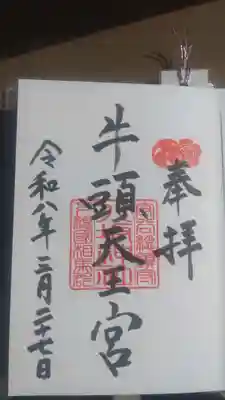 奉拝
牛頭天王宮
令和八年二月二十七日